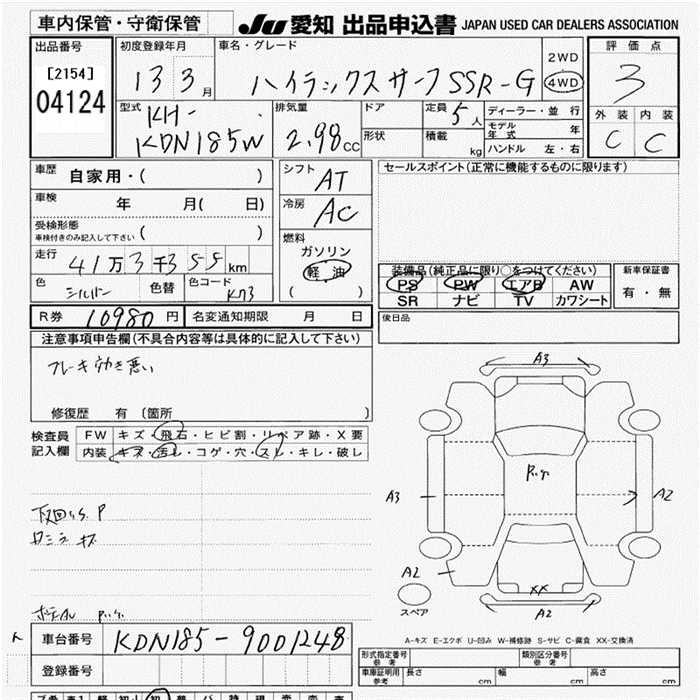 車内保管・守衛保管
JU 愛知 出品申込書 JAPAN USED CAR DEALERS ASSOCIATION
出品番号
[2154]
04124
初度登録年月
13 3月
車名・グレード
ハイラックスサーフSSR-G
2WD
4WD
評価点
3
外装 内装
C C
型式
KH-
KDN185W
排気量
2.98cc
ドア
形状
定員 5人
積載 kg
ディーラー・並行
モデル年式 年
ハンドル 左・右
車歴 自家用・( )
車検 年 月( 日)
受検形態
車検付きのみ記入して下さい ( )
走行 41万3千355km
色 シルバー 色替 色コード
シフト AT
冷房 AC
燃料
ガソリン
軽油
( )
セールスポイント(正常に機能するものに限ります)
装備品(純正品に限り○をつけてください)
PS PW エアB AW
SR ナビ TV カワシート
新車保証書
有・無
後日品
R券 10980円 名変通知期限 月 日
注意事項申告欄(不具合内容等は具体的に記入して下さい)
ブレーキ効き悪い
修復歴 有 〔箇所 〕
検査員
記入欄
FW キズ・飛石・ヒビ割・リペア跡・X要
内装 キズ・汚レ・コゲ・穴・スレ・キレ・破レ
下回りS.P
A3
A3
A2
A2
A2
XX
スペア
A-キズ E-エクボ U-凹み W-補修跡 S-サビ C-腐食 XX-交換済
車台番号 KDN185-9001248
登録番号
形式指定番号 参考
類別区分番号 参考
車庫証明用 参考 長さ cm 幅 cm 高さ cm